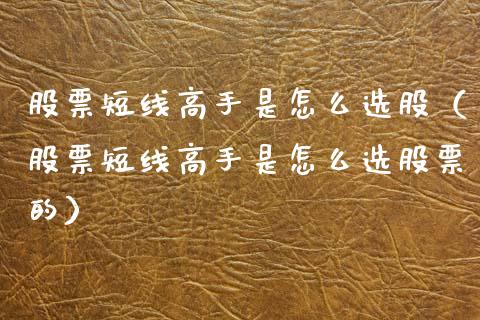 股票短线高手是怎么选股（
股票短线高手是怎么选股票
的）